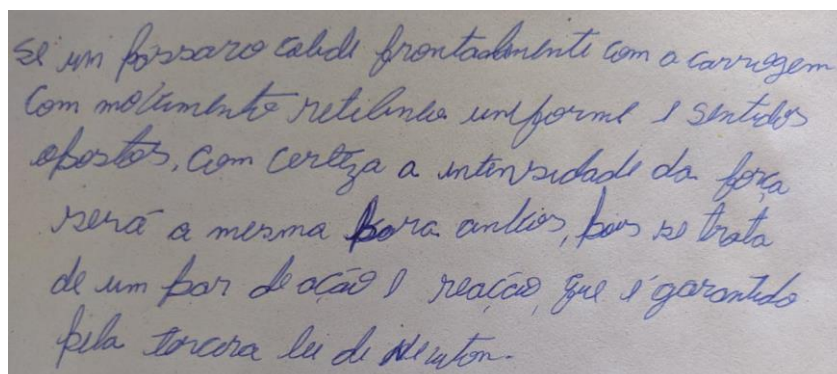 se um pássaro colide frontadmente com a carruagem
com movimento retilineo uniforme e sentidos
opostos, com certeza a intensidade da força
será a mesma para ambos, pois se trata
de um par de ação e reação, que é garantido
pela terceira lei de Newton.